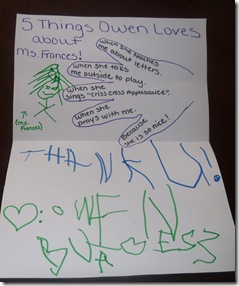 5 Things Owen Loves
about
Ms. Frances!
when she teaches
me about letters.
when she takes
me outside to play.
when she
sings "criss cross applesauce".
when she
prays with me.
Because
she is so nice!
(Ms.
Frances)
THANK U!
OWEN